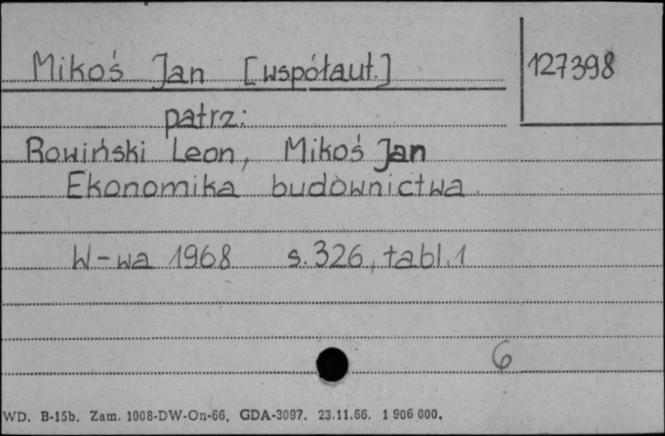 Mikoś Jan [współaut.]
127398
patrz:
Rowiński Leon, Mikoś Jan
Ekonomika budownictwa.
W-wa 1968 s. 326, tabl. 1
6
WD. B-15b. Zam. 1008-DW-On-66. GDA-3097. 23.11.66. 1 906 000.